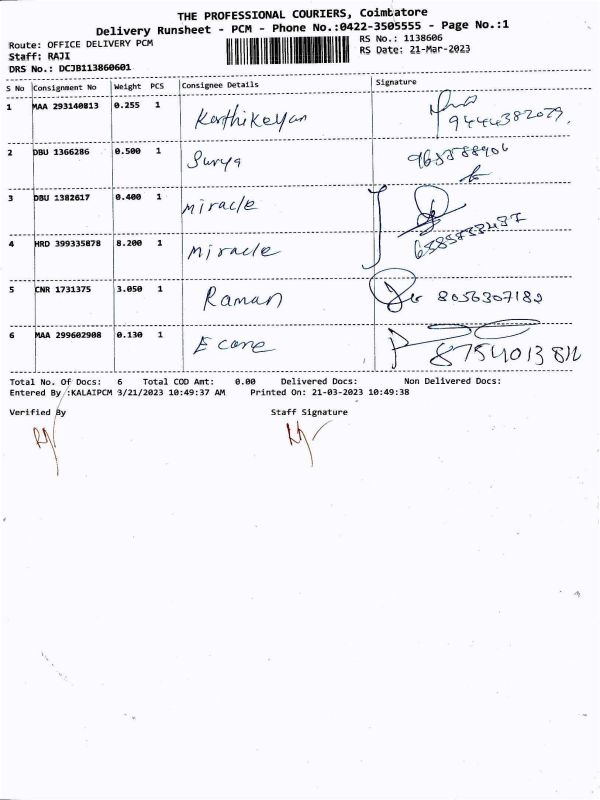 THE PROFESSIONAL COURIERS, Coimbatore
Delivery Runsheet - PCM - Phone No.:0422-3505555 - Page No.:1
Route: OFFICE DELIVERY PCM RS No.: 1138606
Staff: RAJI RS Date: 21-Mar-2023
DRS No.: DCJB113860601
S No Consignment No Weight PCS Consignee Details Signature
1 MAA 293140813 0.255 1 Karthikeyan
9444382079.
2 DBU 1366286 0.500 1 Surya
3 DBU 1382617 0.400 1 Miracle
4 HRD 399335878 8.200 1 Miracle
5 CNR 1731375 3.050 1 Raman 8056307182
6 MAA 299602908 0.130 1 E care
Total No. Of Docs: 6 Total COD Amt: 0.00 Delivered Docs: Non Delivered Docs:
Entered By :KALAIPCM 3/21/2023 10:49:37 AM Printed On: 21-03-2023 10:49:38
Verified By Staff Signature